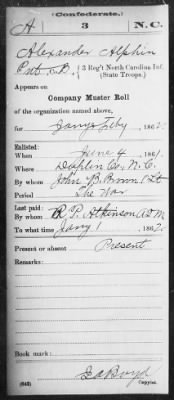 (Confederate.)
A 3 N.C.
Alexander Alphin
Pvt Co. B, 3 Reg't North Carolina Inf.
(State Troops.)
Appears on
Company Muster Roll
of the organization named above,
for Jany & Feby, 1862.
Enlisted:
When June 4, 1861.
Where Duplin Co, N.C.
By whom John B. Brown 1 Lt
Period The War
Last paid:
By whom R P. Atkinson A Q M
To what time Jany 1, 1862.
Present or absent Present
Remarks:
Book mark:
(642) Copyist.